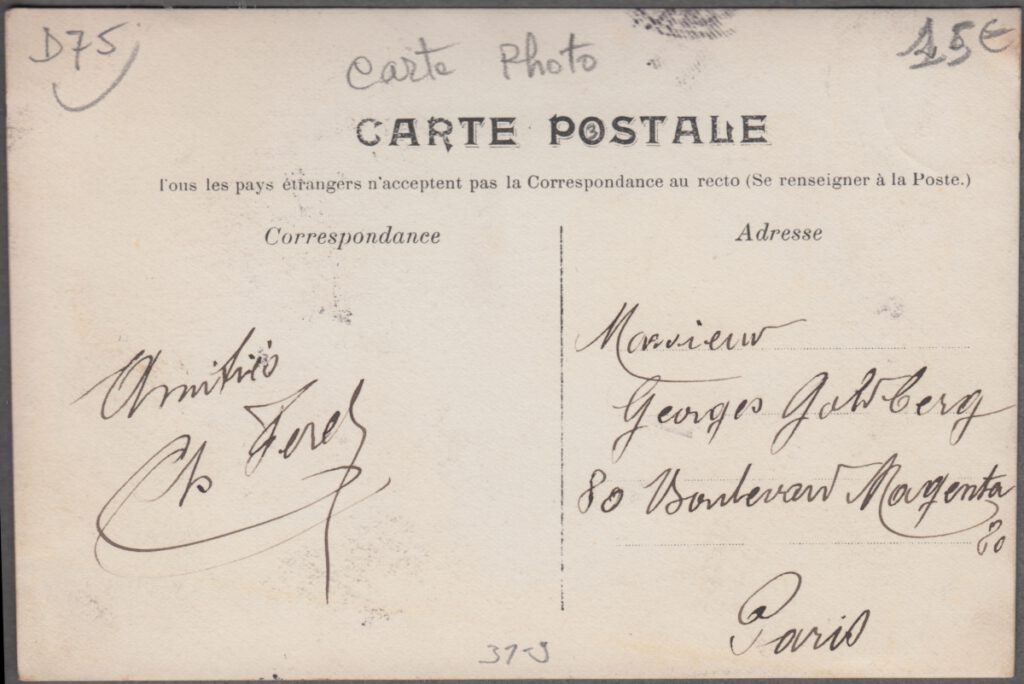 D75
Carte Photo
15€
CARTE POSTALE
Tous les pays étrangers n'acceptent pas la Correspondance au recto (Se renseigner à la Poste.)
Correspondance
Adresse
Amitiés
Ch
Monsieur
Georges Goldberg
80 Boulevard Magenta
80
Paris